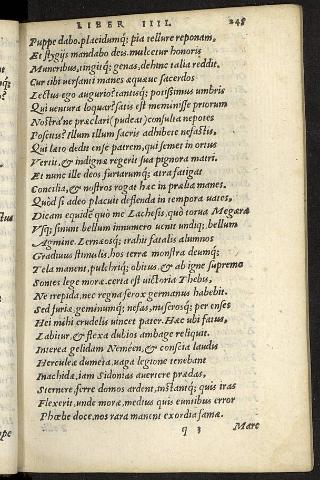 LIBER IIII. 248
Puppe dabo, placidumq; pia tellure reponam,
Et stygijs mandabo deis. mulcetur honoris
Muneribus, tingitq; genas, dehinc talia reddit.
Cur tibi uersanti manes aequaeue sacerdos
Lectus ego augurio? tantisq; potissimus umbris
Qui uentura loquar? satis est meminisse priorum
Nostra'ne praeclari (pudeat) consulta nepotes
Poscitis? illum illum sacris adhibete nefastis,
Qui laeto dedit ense patrem, qui semet in ortus
Vertit, & indignae regerit sua pignora matri.
Et nunc ille deos, furiarumq; atra fatigat
Concilia, & nostros rogat haec in praelia manes.
Quòd si adeo placuit defienda in tempora uates,
Dicam equidē quò me Lachesis, quò torua Megaera
Vsq; sinunt bellum innumero uenit undiq; bellum
Agmine, Lernaeosq; trahit fatalis alumnos
Gradiuus stimulis, hos terrae monstra deumq;
Tela manent, pulchriq; obitus, & ab igne supremo
Sontes lege morae. certa est uictoria Thebis,
Ne trepida, nec regna ferox germanus habebit.
Sed furiae, geminumq; nefas, miserosq; per enses
Hei mihi crudelis uincet pater. Haec ubi fatus,
Labitur, & flexa dubios ambage reliquit.
Interea gelidam Nemeen, & conscia laudis
Herculeae dumeta, uaga legione tenebant
Inachidae, iam Sidonias auertere praedas,
Sternere, ferre domos ardent, instantq; quis iras
Flexerit, unde morae, medius quis euntibus error
Phoebe doce, nos rara manent exordia famae.
q 3 Marc